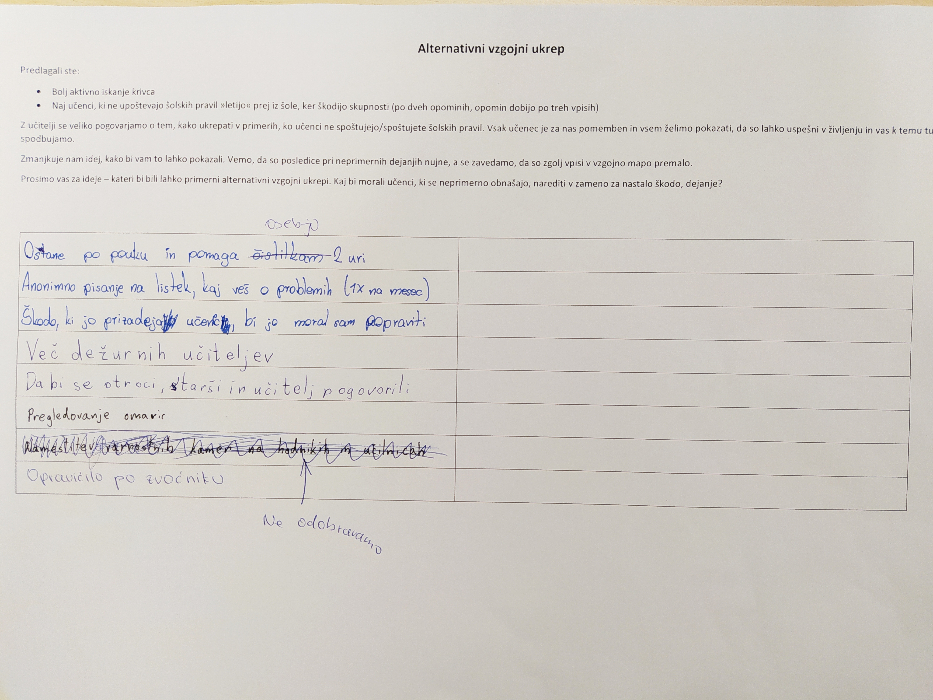 Alternativni vzgojni ukrep
Predlagali ste:
• Bolj aktivno iskanje krivca
• Naj učenci, ki ne upoštevajo šolskih pravil »letijo« prej iz šole, ker škodijo skupnosti (po dveh opominih, opomin dobijo po treh vpisih)
Z učitelji se veliko pogovarjamo o tem, kako ukrepati v primerih, ko učenci ne spoštujejo/spoštujete šolskih pravil. Vsak učenec je za nas pomemben in vsem želimo pokazati, da so lahko uspešni v življenju in vas k temu tu
spodbujamo.
Zmanjkuje nam idej, kako bi vam to lahko pokazali. Vemo, da so posledice pri neprimernih dejanjih nujne, a se zavedamo, da so zgolj vpisi v vzgojno mapo premalo.
Prosimo vas za ideje – kateri bi bili lahko primerni alternativni vzgojni ukrepi. Kaj bi morali učenci, ki se neprimerno obnašajo, narediti v zameno za nastalo škodo, dejanje?
osebju
Ostane po pouku in pomaga čistilkam 2 uri
Anonimno pisanje na listek, kaj veš o problemih (1x na mesec)
Škodo, ki jo prizadeja učenec, bi jo moral sam popraviti
Več dežurnih učiteljev
Da bi se otroci, starši in učitelj pogovorili
Pregledovanje omaric
Namestitev varnostnih kamer na hodnikih in učilnicah
Opravičilo po zvočniku
Ne odobravamo